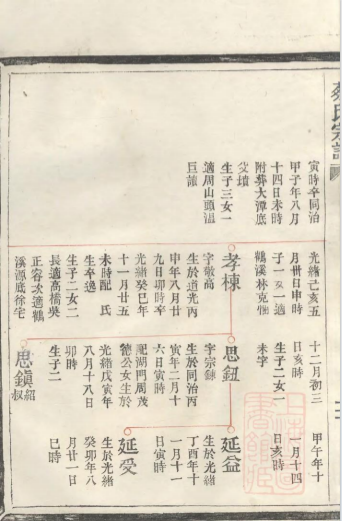 氏宗譜
寅時卒同治
甲子年八月
十四日未時
附葬大潭底
父墳
生子三女一
適周山頭溫
巨謙
光緒己亥五
月卅日申時
子一女一適
鶴溪林克
孝棟
字敬高
生於道光丙
申年八月廿
九日卯時卒
光緒癸巳年
十一月廿五
未時配 氏
生卒逸
生子二女二
長適高橋吳
正容次適鶴
溪源底徐宅
十二月初三
日亥時
生子二女一
未字
思鈕
字宗
生於同治丙
寅年二月十
六日寅時
配湖門周茂
德公女生於
光緒戊寅年
八月十八日
卯時
生子二
思鎮
紹
叔
甲午年十
一月十四
日亥時
延益
生於光緒
丁酉年十
一月十一
日寅時
延受
生於光緒
癸卯年八
月廿一日
巳時